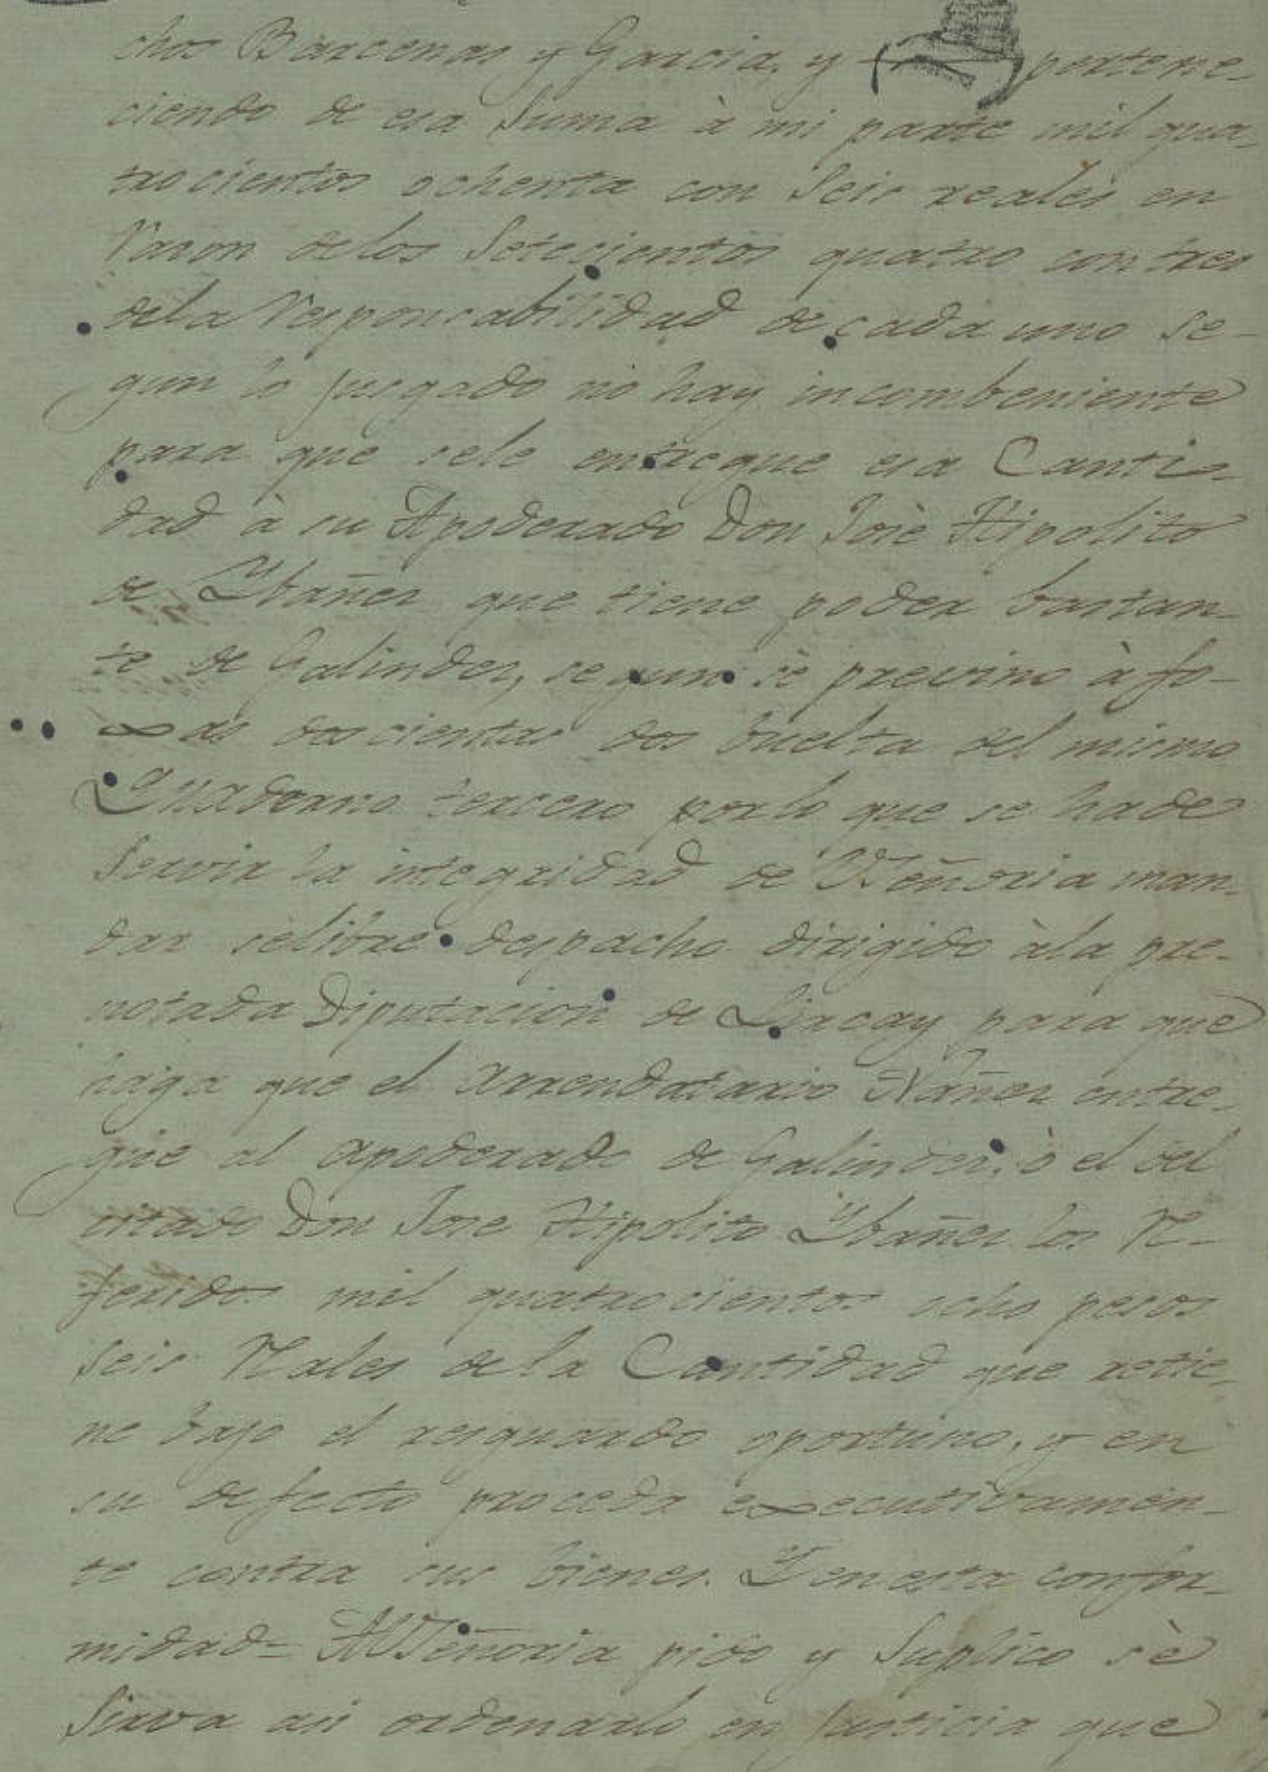 chos Barcenas y Garcia, y pertene-
ciendo de esa Suma à mi parte mil qua-
trocientos ochenta con Seis reales en
Razon delos Setecientos quatro con tres
dela Responsabilidad de cada uno se-
gun lo jusgado no hay incombeniente
para que sele entregue esa Canti-
dad à su Apoderado Don Josè Hipolito
de Ybañes que tiene poder bastan-
te de Galindes, segun sè previno à fo-
xas doscientas dos buelta del mismo
Quaderno tercero porlo que se hade
Servir la integridad de VSeñoria man-
dar selibre despacho dirigido àla pre-
notada Diputacion de Lircay para que
haga que el Arrendatario Nañes entre-
gue al apoderado de Galindes, ò el del
citado Don Jose Hipolito Ybañes los Re-
feridos mil quatrocientos ocho pesos
Seis Rales de la Cantidad que retie-
ne bajo el resguardo oportuno, y en
su defecto proceda executivamen-
te contra sus bienes. Y en esta confor-
midad= A VSeñoria pido y Suplico sè
Sirva asi ordenarlo en Justicia que